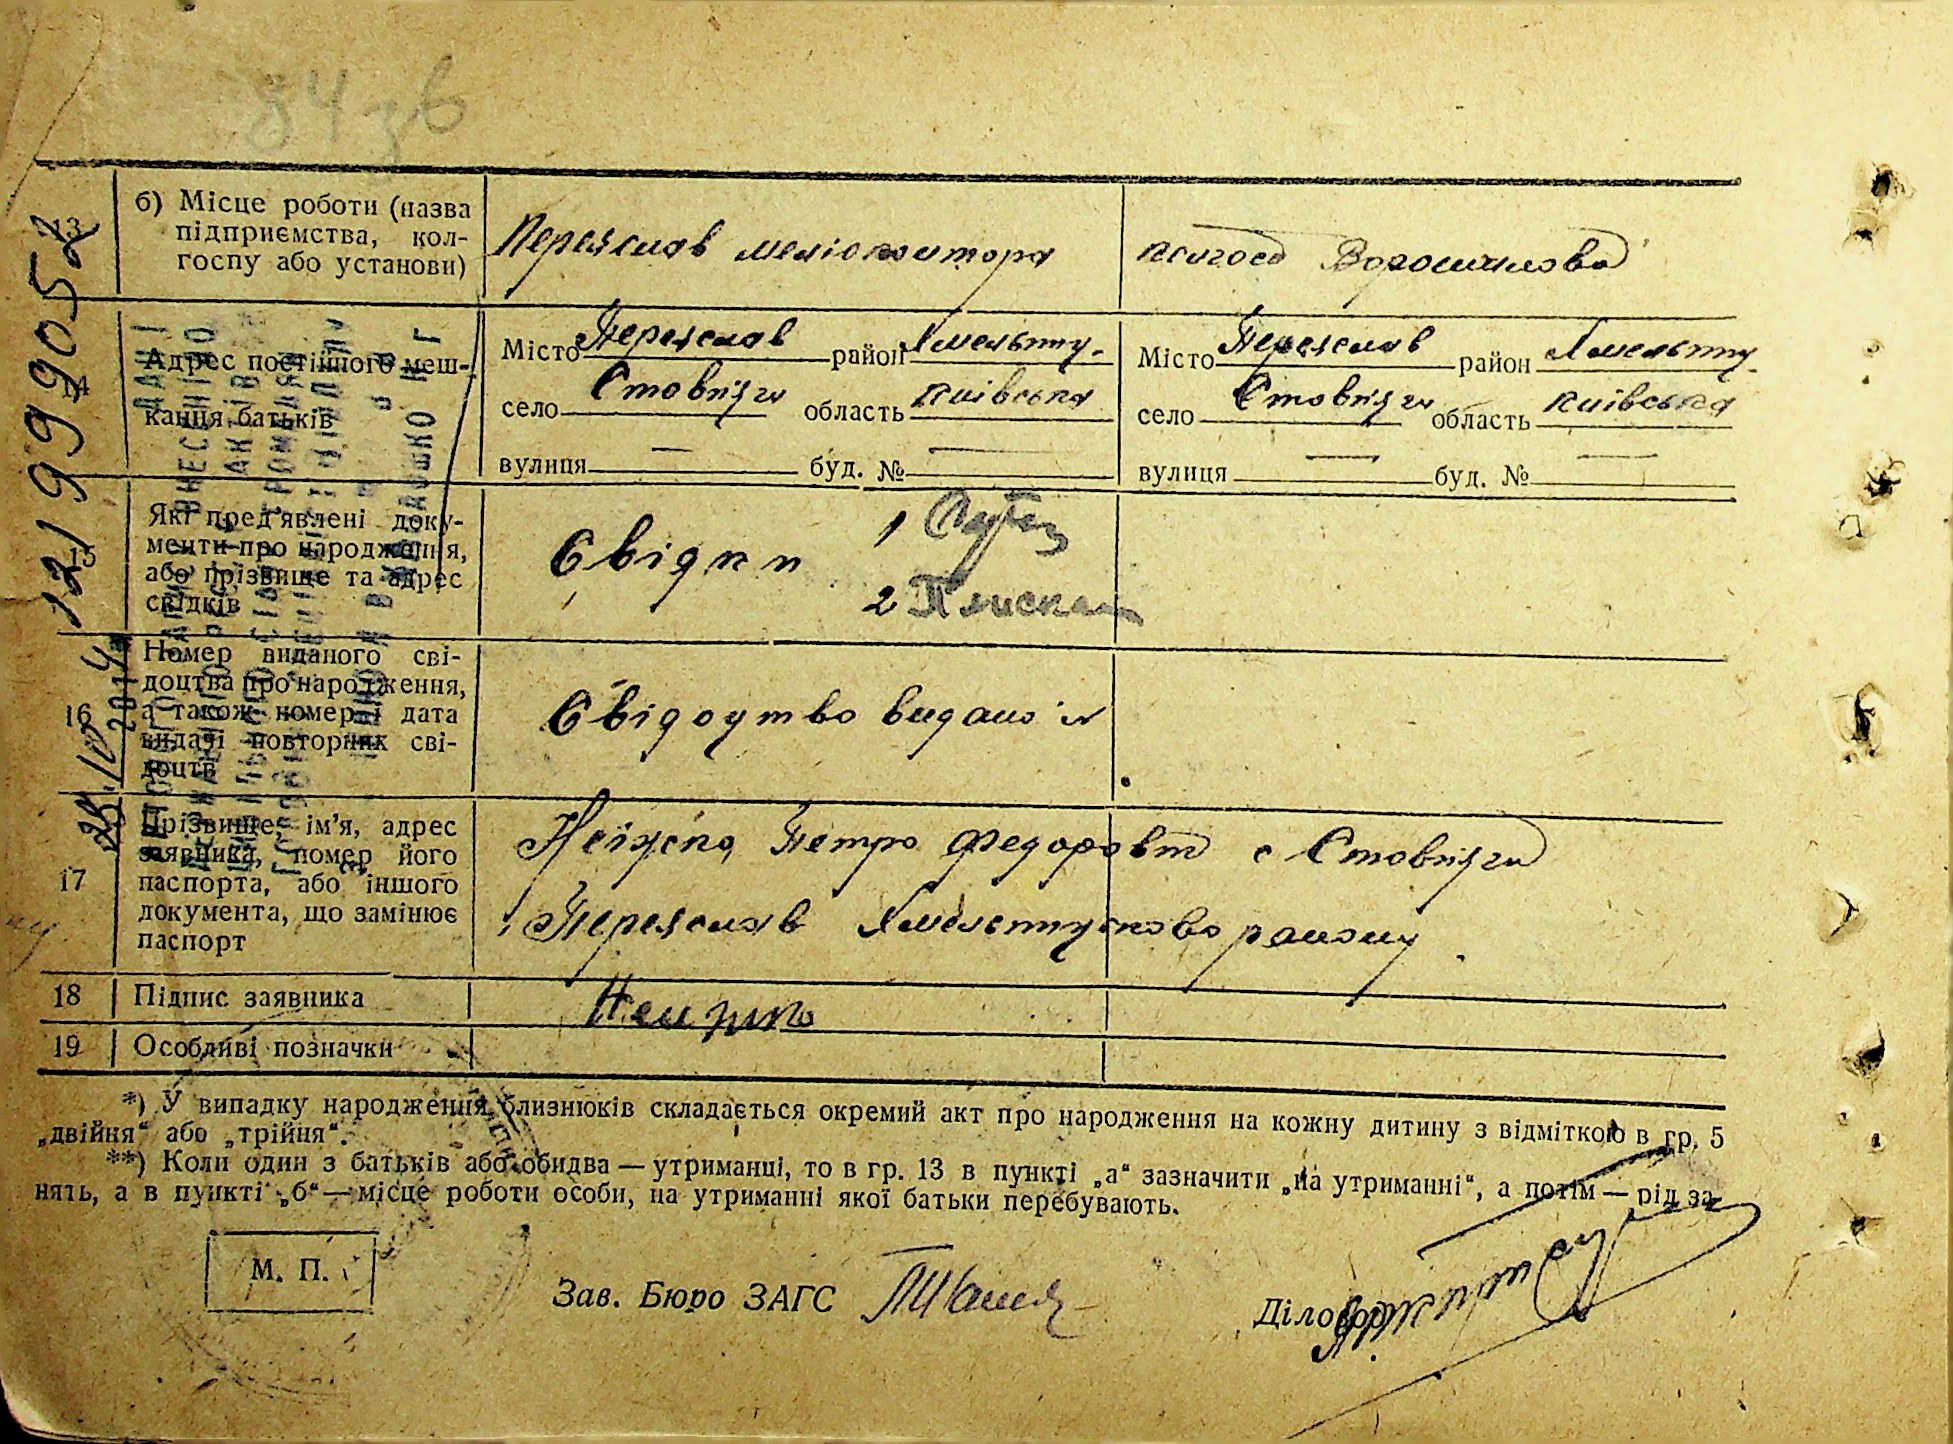 84 зв
12199905
13
б) Місце роботи (назва
підприємства, кол-
госпу або установи)
Переяслав меліоконтора
колгосп Ворошилова
14
Адрес постійного меш-
канця батьків
Місто Переяслав район Хмельниц.
село Стовп'яги область київська
вулиця — буд. № —
Місто Переяслав район Хмельниц
село Стовп'яги область київська
вулиця — буд. № —
15
Які пред'явлені доку-
менти про народження,
або прізвище та адрес
свідків
Свідки 1
2
16
Номер виданого сві-
доцтва про народження,
а також номер і дата
видачі повторних сві-
доцтв
Свідоцтво видано
17
Прізвище, ім'я, адрес
заявника, номер його
паспорта, або іншого
документа, що замінює
паспорт
Петро Федоров с Стовп'яги
Переяслав Хмельницького району
18
Підпис заявника
19
Особливі позначки
*) У випадку народження близнюків складається окремий акт про народження на кожну дитину з відміткою в гр. 5
„двійня“ або „трійня“.
**) Коли один з батьків або обидва — утриманці, то в гр. 13 в пункті „а“ зазначити „на утриманні“, а потім — рід за-
нять, а в пункті „б“ — місце роботи особи, на утриманні якої батьки перебувають.
М. П.
Зав. Бюро ЗАГС
Діловод